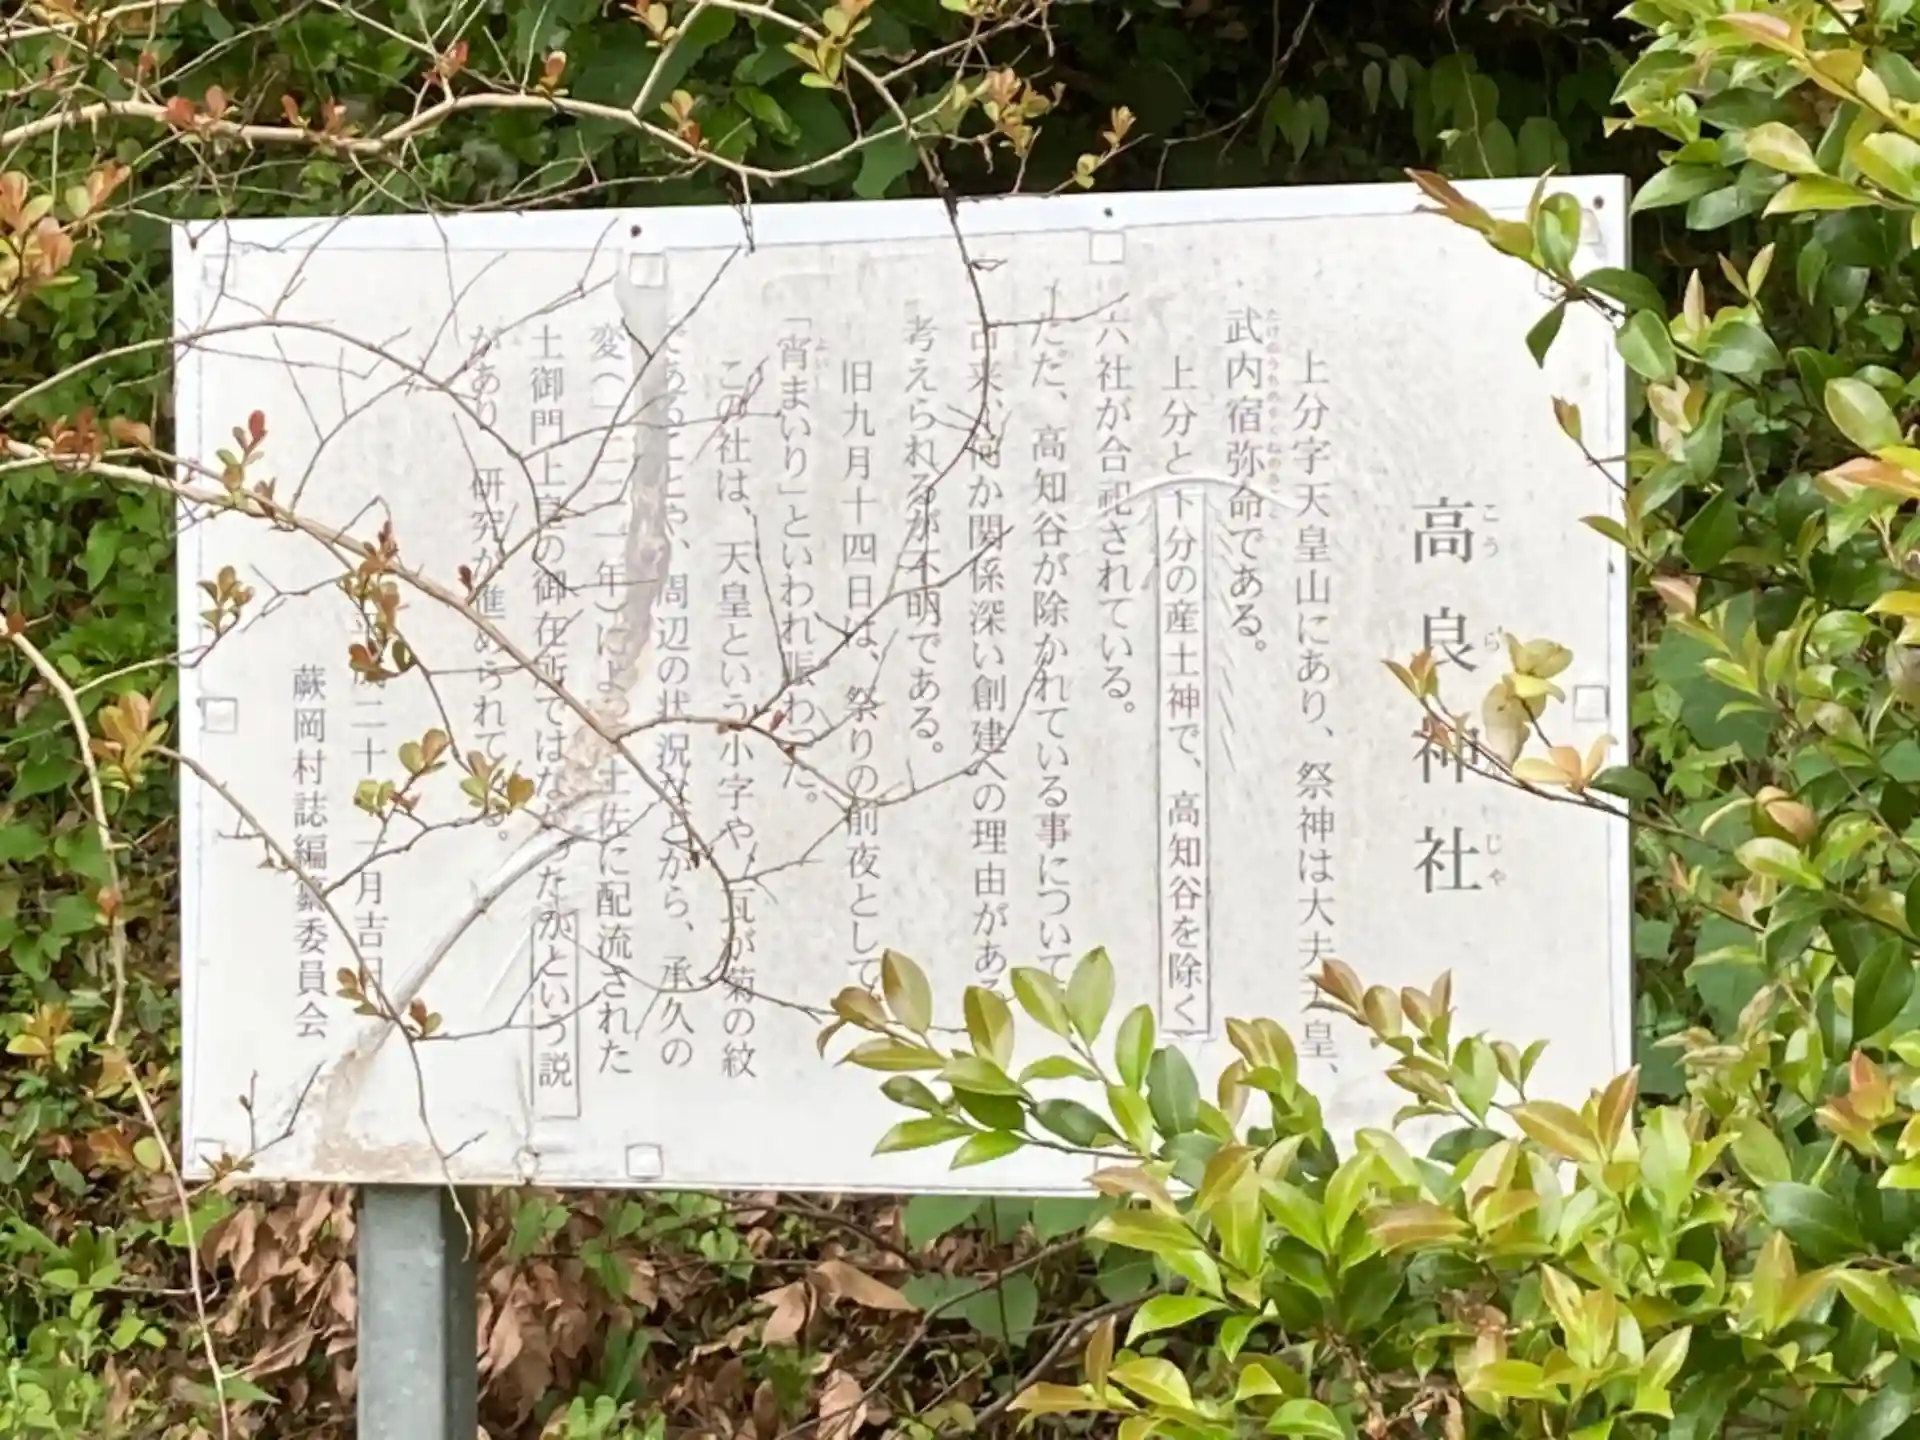 高良神社
上分字天皇山にあり、祭神は大夫天皇、
武内宿弥命である。
上分と下分の産土神で、高知谷を除く
六社が合祀されている。
ただ、高知谷が除かれている事について
古来、何か関係深い創建への理由がある
考えられるが不明である。
旧九月十四日は、祭りの前夜として
「宵まいり」といわれ賑わった。
この社は、天皇という小字や、瓦が菊の紋
であることや、周辺の状況などから、承久の
変(一二二一年)によって土佐に配流された
土御門上皇の御在所ではなかったかという説
があり、研究が進められている。
二十 月吉日
蕨岡村誌編纂委員会